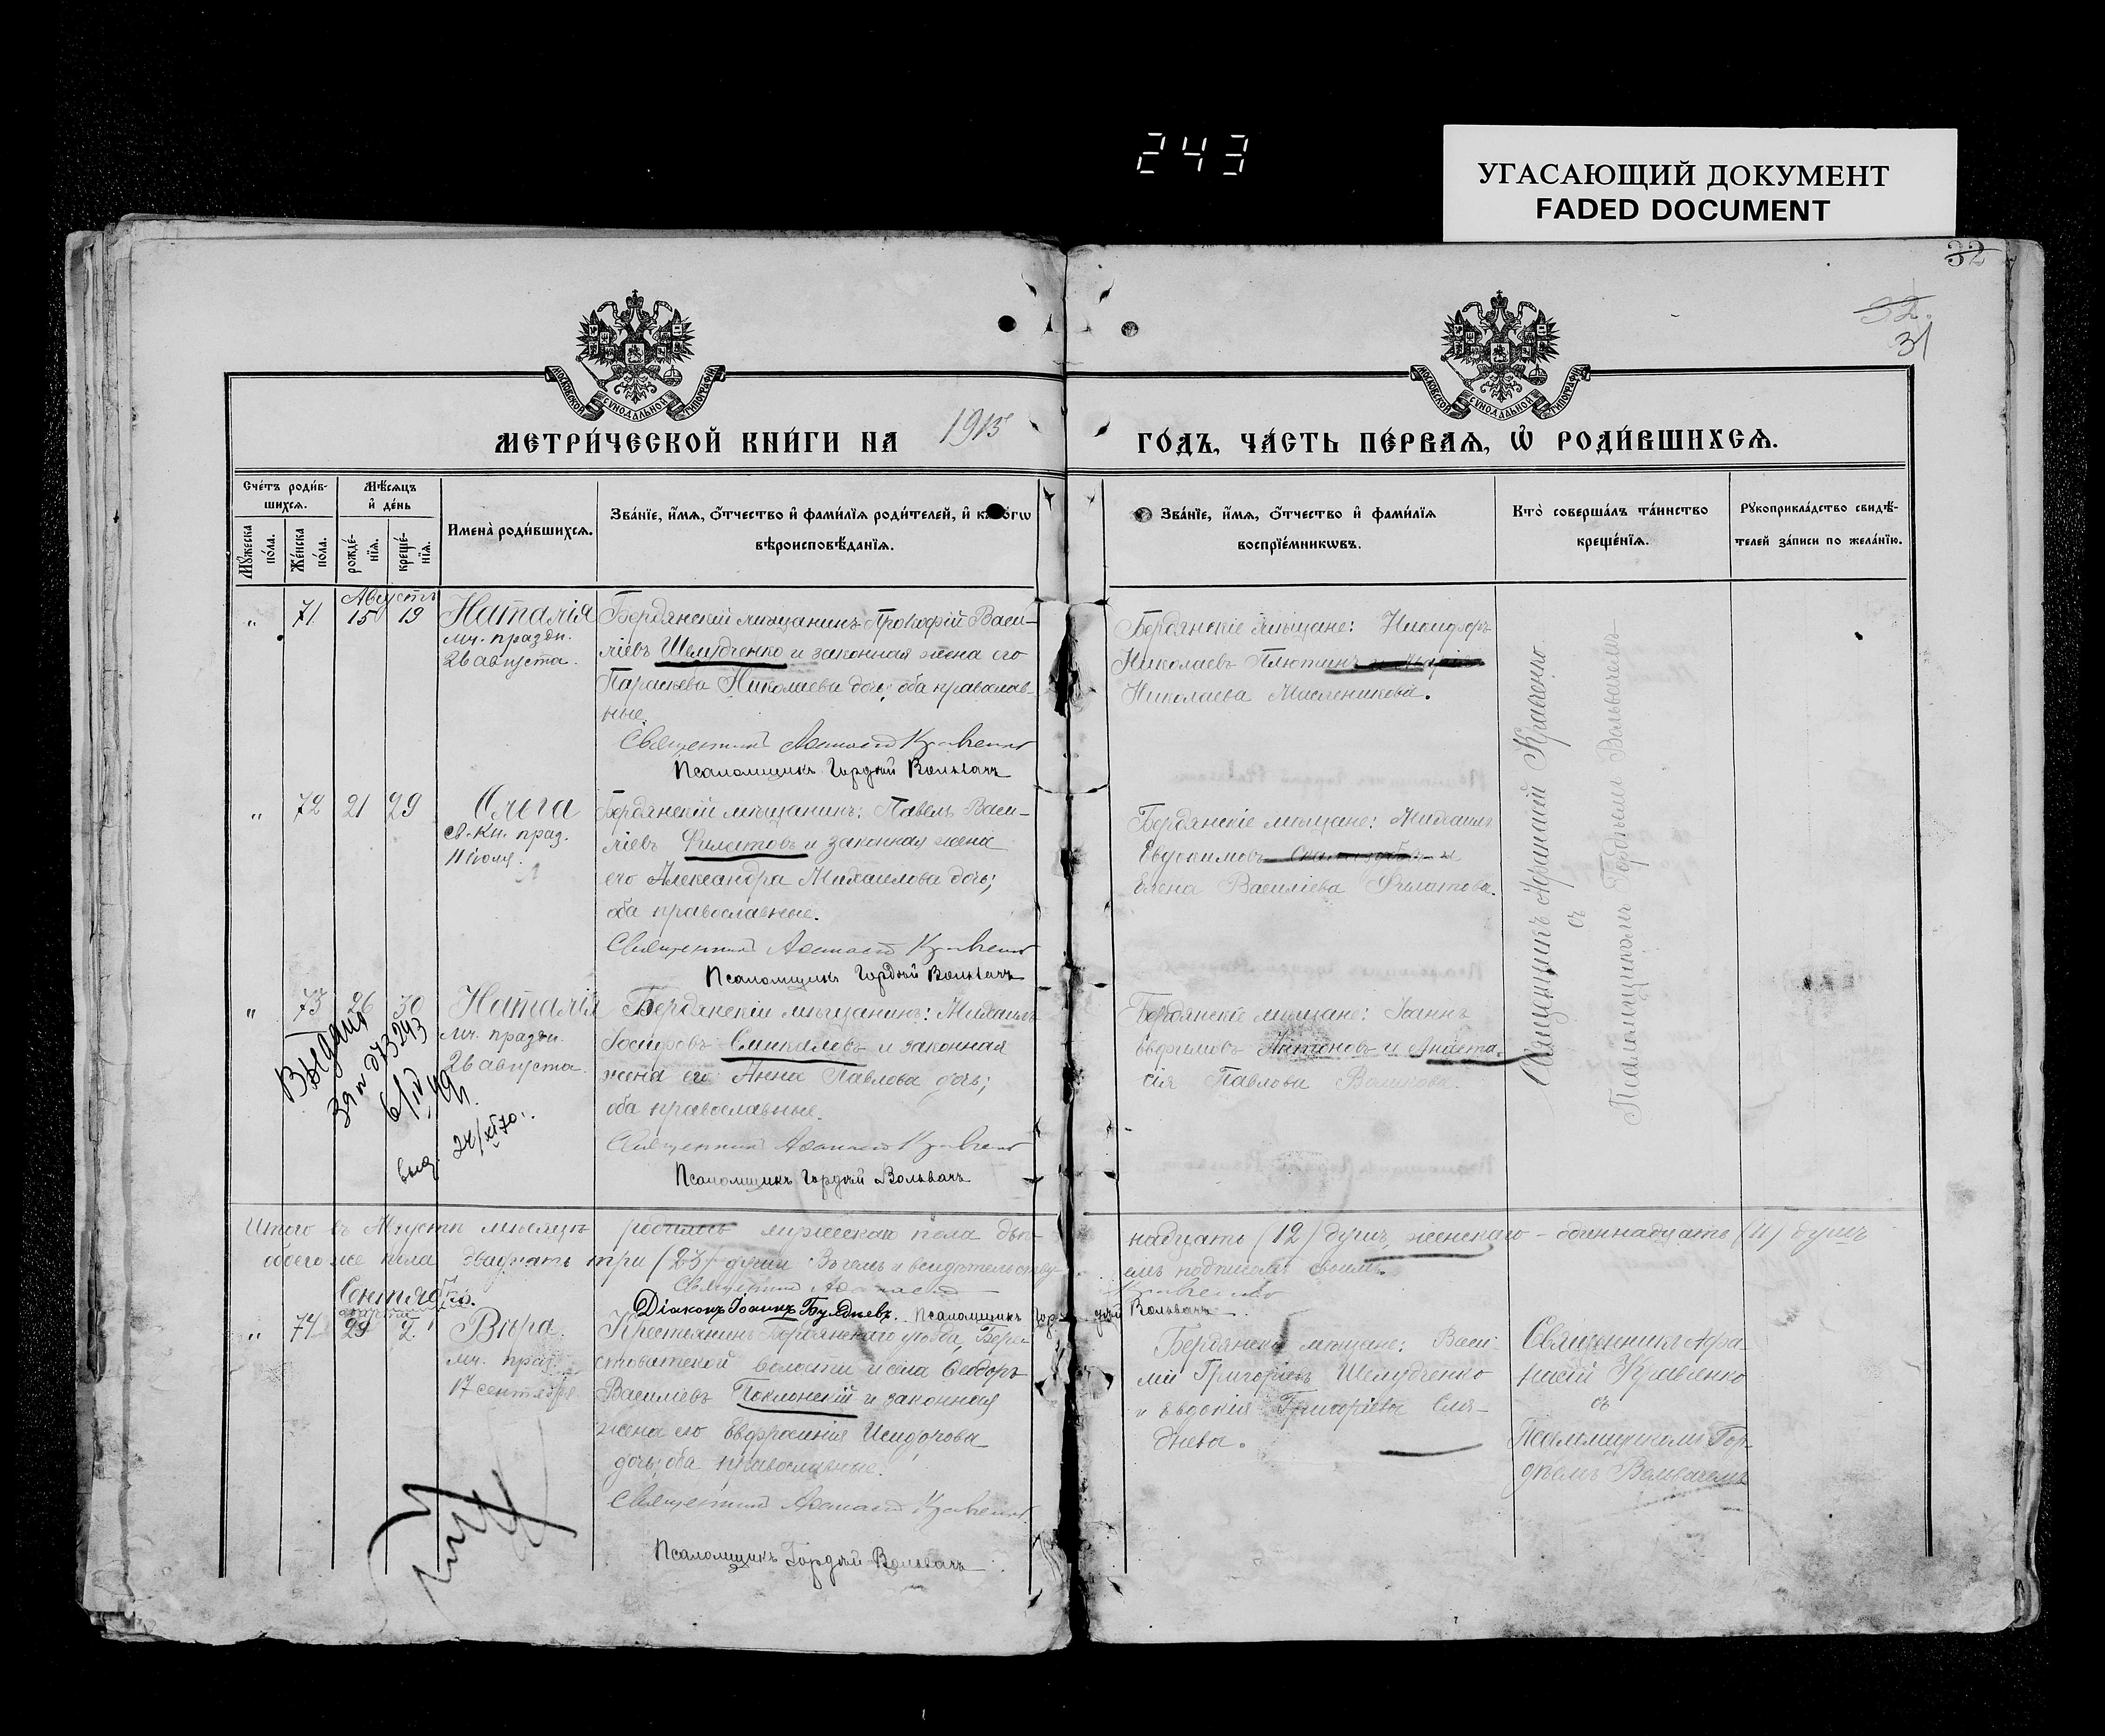 243
УГАСАЮЩИЙ ДОКУМЕНТ
FADED DOCUMENT
32
32.
31
МОСКОВСКОЙ СѴНОДАЛЬНОЙ ТИПОГРАФІИ
МОСКОВСКОЙ СѴНОДАЛЬНОЙ ТИПОГРАФІИ
МЕТРИ́ЧЕСКОЙ КНИ́ГИ НА 1913 ГО́ДЪ, ЧА́СТЬ ПЕ́РВАѦ, Ѡ҆ РОДИ́ВШИХСѦ.
Сче́тъ роди́в-
шихсѧ.
Мѣ́сѧцъ
и҆ де́нь
Мꙋ́жеска
по́ла.
Же́нска
по́ла.
рожде́-
нїѧ.
креще́-
нїѧ.
Имена̀ роди́вшихсѧ.
Зва́нїе, и҆́мѧ, ѻ҆́тчество и҆ фами́лїѧ роди́телей, и҆
вѣроисповѣ́данїѧ.
Зва́нїе, и҆́мѧ, ѻ҆́тчество и҆ фами́лїѧ
воспрїе́мникѡвъ.
Кто̀ соверша́лъ та́инство
креще́нїѧ.
Рꙋкоприкла́дство свидѣ́-
телей за́писи по жела́нїю.
Августъ
„ 71 15 19 Наталія
мч. праздн.
26 августа.
Бердянскій мѣщанинъ Прокофій Васи-
ліевъ Шелудченко и законная жена его
Параскева Николаева дочь; оба православ-
ные.
Священникъ Афанасій Кравченко
Псаломщикъ Гордѣй Вольвачъ
Бердянскіе мѣщане: Никифоръ
Николаевъ Плютинъ и Марія
Николаева Масленикова.
Священникъ Афанасій Кравченко
съ
Псаломщикомъ Гордѣемъ Вольвачемъ
„ 72 21 29 Ольга
св. кн. праз.
11 іюля.
Бердянскій мѣщанинъ: Павелъ Васи-
ліевъ Филатовъ и законная жена
его Александра Михаилова дочь;
оба православные.
Священникъ Афанасій Кравченко
Псаломщикъ Гордѣй Вольвачъ
Бердянскіе мѣщане: Михаилъ
Евдокимовъ и
Елена Василіева Филатова.
„ 73 26 30 Наталія
мч. праздн.
26 августа.
Бердянскій мѣщанинъ: Михаилъ
Іосифовъ Синкаловъ и законная
жена его Анна Павлова дочь;
оба православные.
Священникъ Афанасій Кравченко
Псаломщикъ Гордѣй Вольвачъ
Бердянскіе мѣщане: Іоаннъ
Евфимовъ Антоновъ и Анаста-
сія Павлова Волкова.
Выдано
6/IV 49
выд. 24/XI 70
Итого въ Августѣ мѣсяцѣ родилось мужескаго пола двѣ-
надцать (12) душъ, женскаго – одиннадцать (11) душъ
обоего же пола двадцать три (23) души. Въ чемъ и свидѣтельству-
емъ подписомъ своимъ.
Священникъ Афанасій Кравченко
Діаконъ Іоаннъ Псаломщикъ Гордѣй Вольвачъ
Сентябрь.
августа
„ 74 29 2 Вѣра
мч. праз.
17 сентября.
Крестьянинъ Бердянскаго уѣзда, Бере-
стоватской волости и села Ѳеодоръ
Василіевъ Поклонскій и законная
жена его Евфросинія Исидорова
дочь; оба православные.
Священникъ Афанасій Кравченко
Псаломщикъ Гордѣй Вольвачъ
Бердянскіе мѣщане: Васи-
лій Григоріевъ Шелудченко
и Евдокія Григоріева Слю-
днева.
Священникъ Афа-
насій Кравченко
съ
Псаломщикомъ Гор-
дѣемъ Вольвачемъ